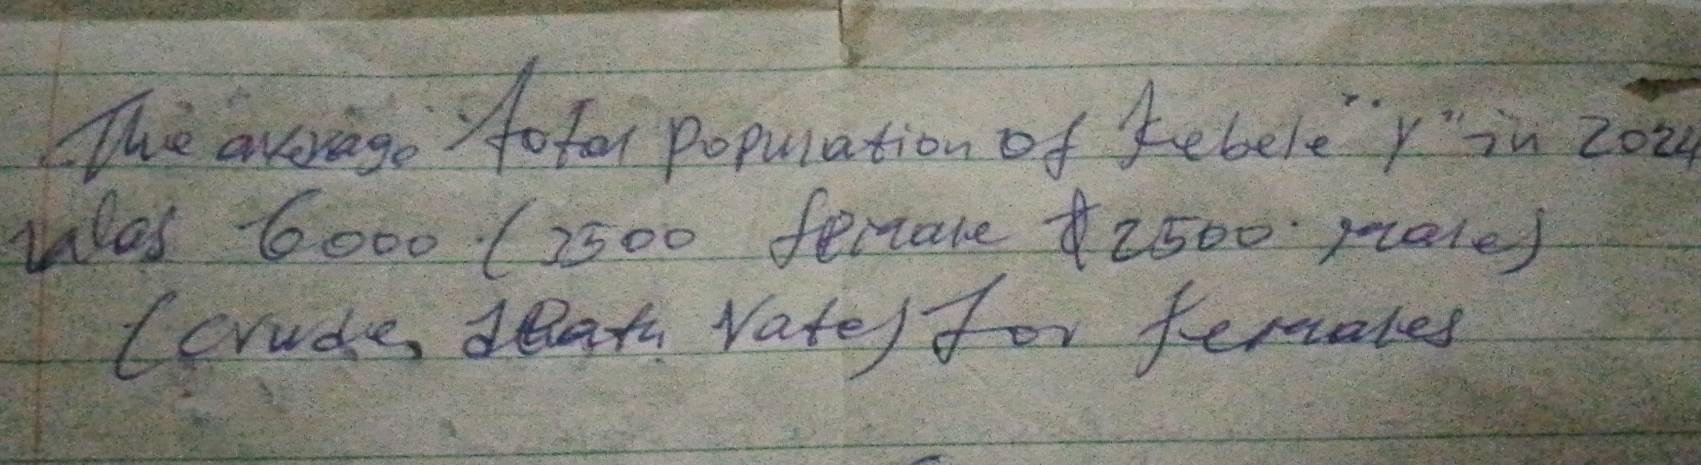 The average total population of Kebele "Y" in 2024
was 6000 (3500 female & 2500 male)
(crude, death rate) for females